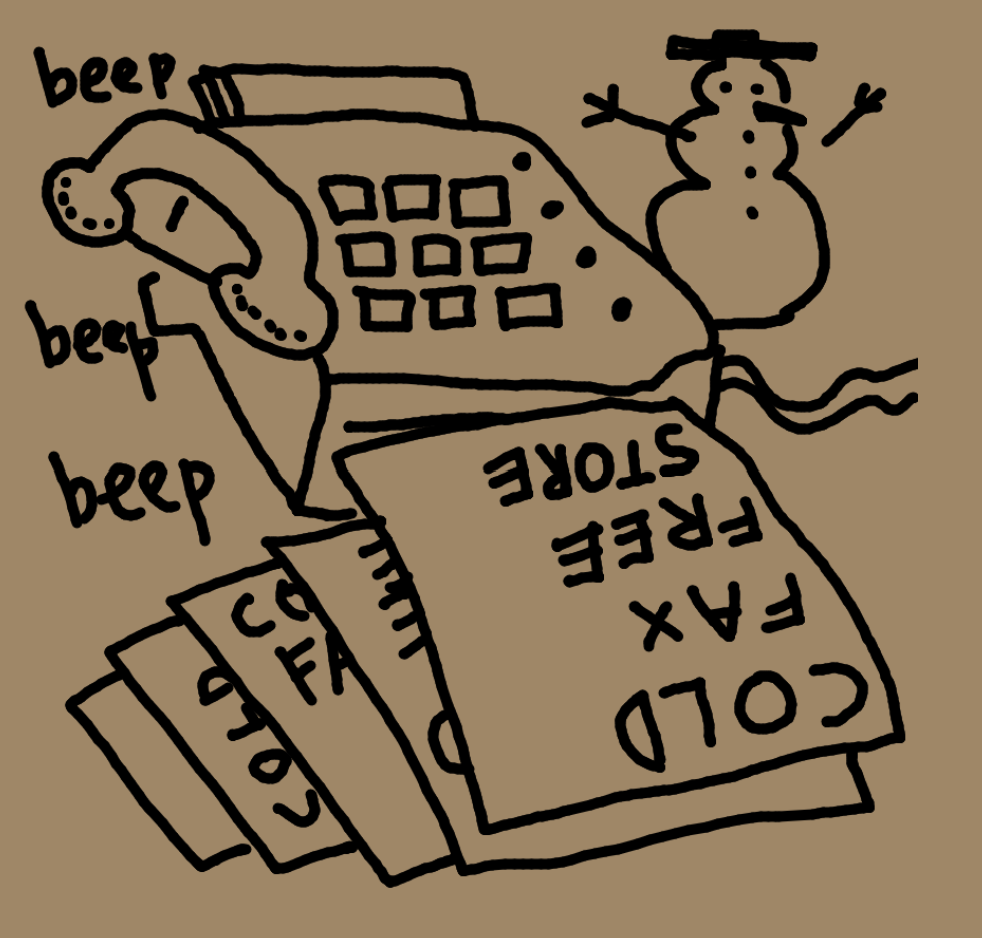 beep
beep
beep
COLD
FAX
FREE
STORE
CO
FA
COLD